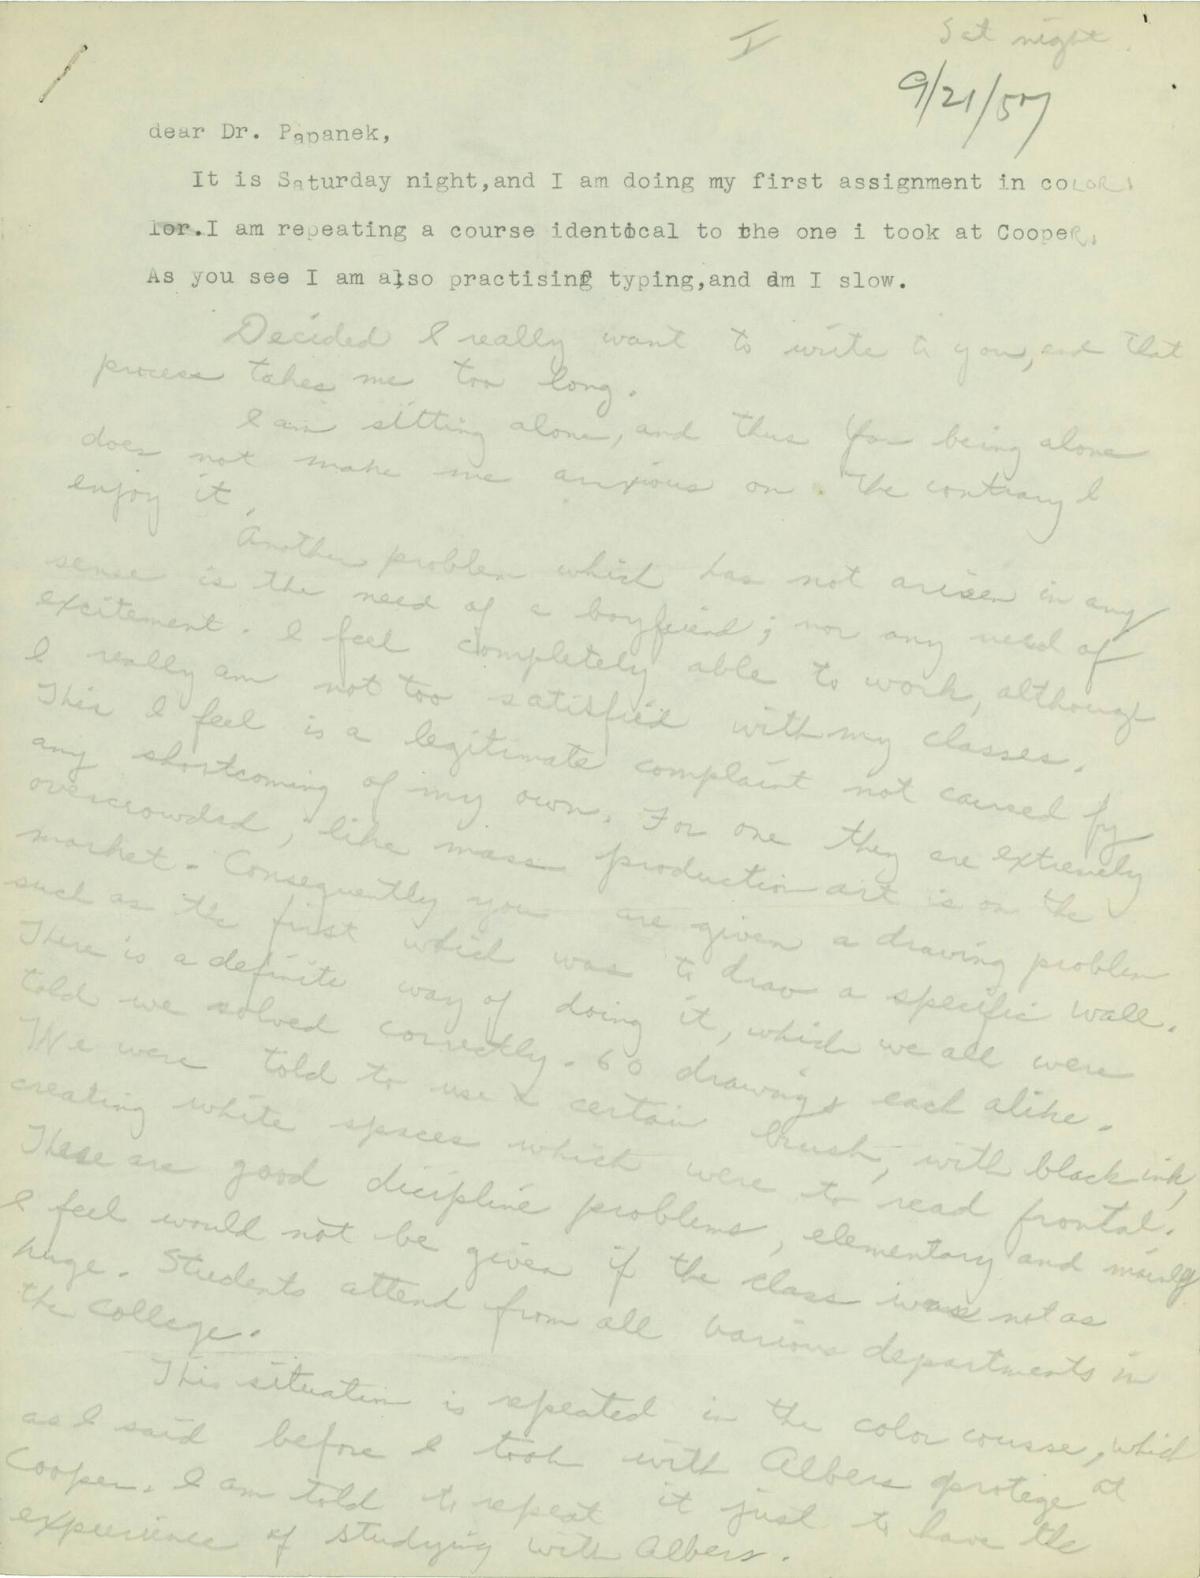 I
Sat night.
9/21/57
dear Dr. Papanek,
It is Saturday night,and I am doing my first assignment in coLOR
lor.I am repeating a course identical to the one i took at CoopeR.
As you see I am also practising typing,and am I slow.
Decided I really want to write to you, and that
process takes me too long.
I am sitting alone, and thus far being alone
does not make me anxious on the contrary I
enjoy it.
Another problem which has not arisen in any
sense is the need of a boyfriend; nor any need of
excitement. I feel completely able to work, although
I really am not too satisfied with my classes.
This I feel is a legitimate complaint not caused by
any shortcoming of my own. For one they are extremely
overcrowded, like mass production art is on the
market. Consequently you are given a drawing problem
such as the first which was to draw a specific wall.
There is a definite way of doing it, which we all were
told we solved correctly. 60 drawings each alike.
We were told to use a certain brush, with black ink,
creating white spaces which were to read frontal.
These are good dicipline problems, elementary and mainly
I feel would not be given if the class was not as
huge. Students attend from all various departments in
the college.
This situation is repeated in the color course, which
as I said before I took with Albers protege at
Cooper. I am told to repeat it just to have the
experience of studying with Albers.